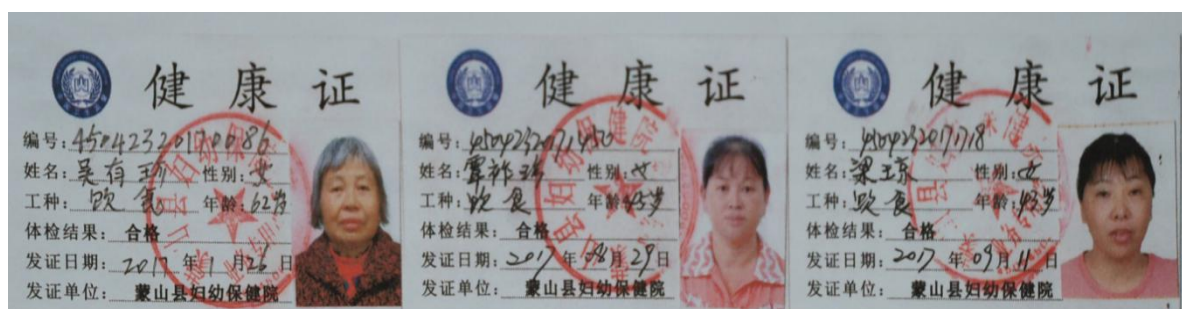 健康证
编号:45042320170086
姓名:吴有珍 性别:女
工种:饮食 年龄:62岁
体检结果:合格
发证日期:2017年1月26日
发证单位:蒙山县妇幼保健院
健康证
编号:
姓名:覃祚 性别:女
工种:饮食 年龄:45岁
体检结果:合格
发证日期:2017年08月29日
发证单位:蒙山县妇幼保健院
健康证
编号:
姓名:梁琼 性别:女
工种:饮食 年龄:43岁
体检结果:合格
发证日期:2017年09月11日
发证单位:蒙山县妇幼保健院